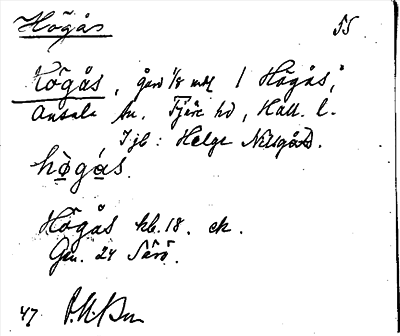 Högås 55
Högås, gård 1/8 mtl i Högås,
Onsala sn. Fjäre hd, Hall. l.
Ijb: Helge Nilsgård.
hògás.
Högås kb. 18. ek.
Gen. 24 Särö.
47